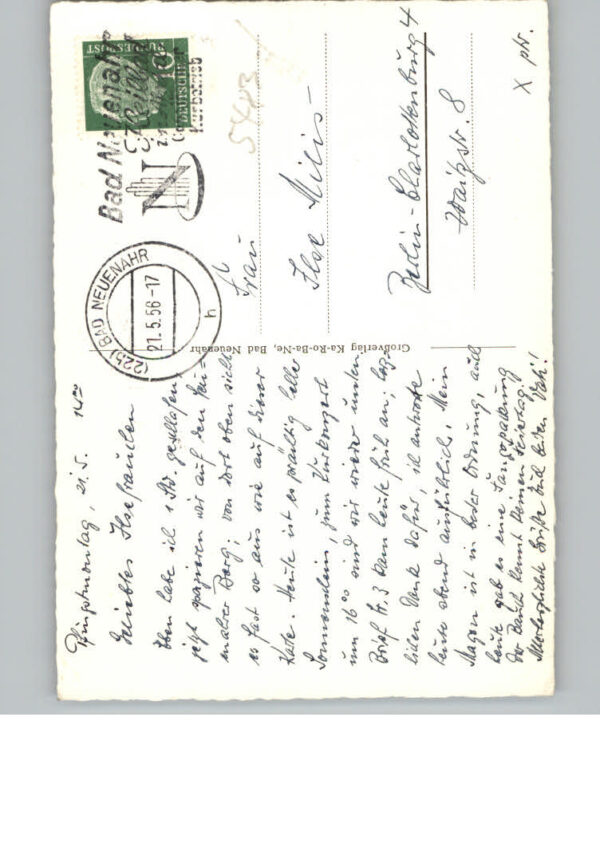 Pfingstmontag, 21.5. 14°°
Geliebtes Ilsefrauchen
Eben habe ich 1 Std. geschlafen,
jetzt spazieren wir auf den Neu=
enahrer Berg; von dort oben sieht
es fast so aus wie auf dieser
Karte. Heute ist es prächtig heller
Sonnenschein, zum Kurkonzert
um 16°° sind wir wieder unten.
Brief Nr. 3 kam heute früh an, herz=
lichen Dank dafür, ich antworte
heute abend ausführlich. Mein
Magen ist in bester Ordnung, auch
heute gab es eine Fangopackung
der Bauch kennt keinen Feiertag.
Allerherzlichste Grüße Euch beiden Vati!
Großverlag Ka-Ro-Ba-Ne, Bad Neuenahr
(22b) BAD NEUENAHR
21.5.56-17
h
Bad Neuenahr
Kurbetrieb
DEUTSCHE
BUNDESPOST
10
5403
Frau
Ilse Milis
Berlin-Charlottenburg 4
Waitzstr. 8
X ptr.